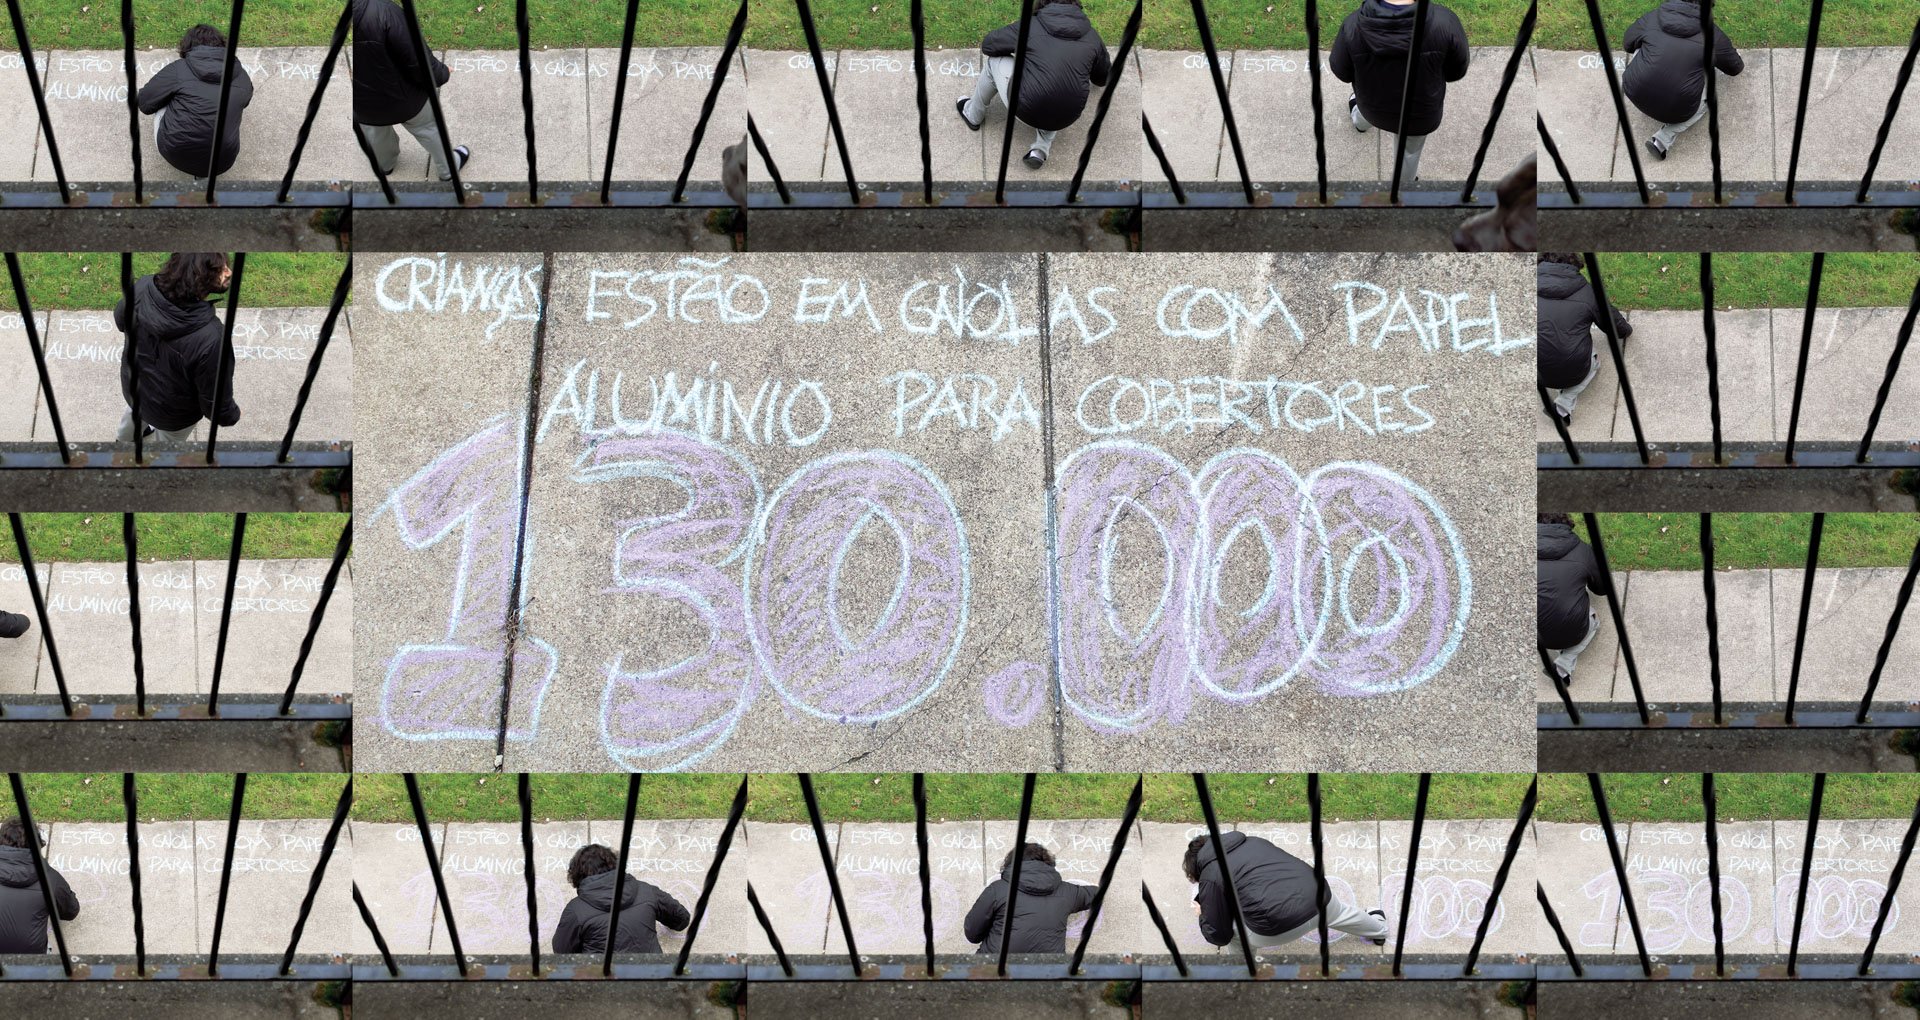 CRIANÇAS ESTÃO EM GAIOLAS COM PAPEL
ALUMÍNIO PARA COBERTORES
130.000